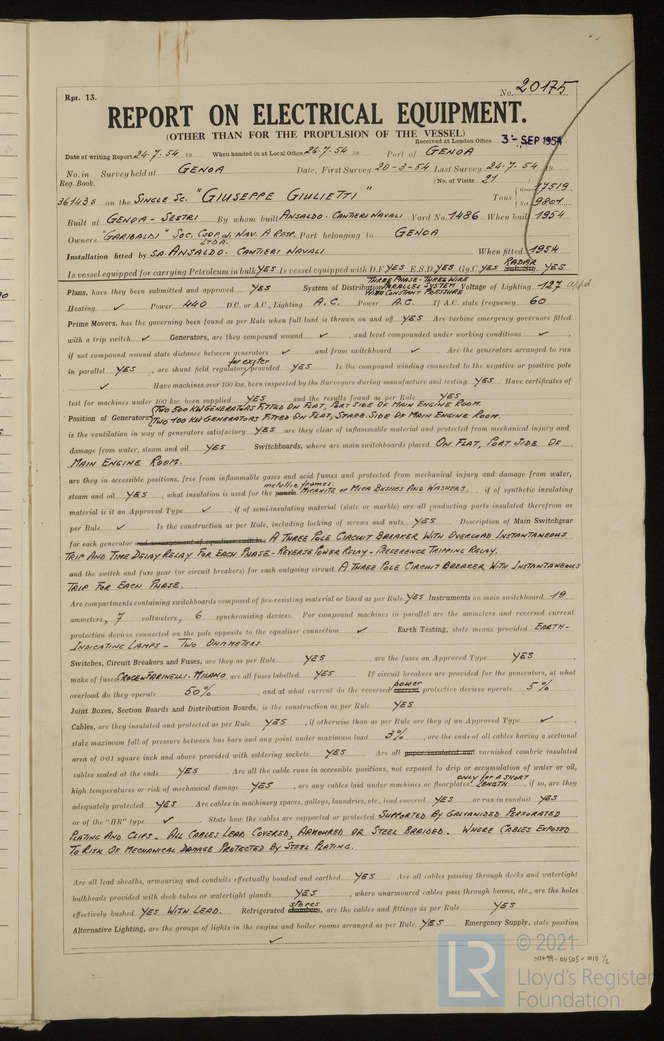 Rpt. 13.
No. 20175
REPORT ON ELECTRICAL EQUIPMENT.
(OTHER THAN FOR THE PROPULSION OF THE VESSEL)
Received at London Office 3 - SEP 1954
Date of writing Report 24-7-54 19 When handed in at Local Office 26-7-54 19 Port of GENOA
No. in Survey held at GENOA Date, First Survey 20-3-54 Last Survey 24-7-54 19
Reg. Book. (No. of Visits 21
36143 S on the SINGLE SC. "GIUSEPPE GIULIETTI" Tons { Gross 17519
Net 9804
Built at GENOA - SESTRI By whom built ANSALDO - CANTIERI NAVALI Yard No. 1486 When built 1954
Owners "GARIBALDI" SOC. COOP. di NAV. A RESP. LTDA. Port belonging to GENOA
Installation fitted by S.A. ANSALDO - CANTIERI NAVALI When fitted 1954
Is vessel equipped for carrying Petroleum in bulk YES Is vessel equipped with D.F. YES E.S.D. YES Gy.C. YES RADAR Sub.Sig. YES
Plans, have they been submitted and approved YES System of Distribution THREE PHASE - THREE WIRE PARALLEL SYSTEM WITH CONSTANT PRESSURE Voltage of Lighting 127
Heating ✓ Power 440 D.C. or A.C., Lighting A.C. Power A.C. If A.C. state frequency 60
Prime Movers, has the governing been found as per Rule when full load is thrown on and off YES Are turbine emergency governors fitted
with a trip switch ✓ Generators, are they compound wound ✓, and level compounded under working conditions ✓,
if not compound wound state distance between generators ✓ and from switchboard ✓ Are the generators arranged to run
in parallel YES, are shunt field regulators for exciter provided YES Is the compound winding connected to the negative or positive pole
✓ Have machines over 100 kw. been inspected by the Surveyors during manufacture and testing YES Have certificates of
test for machines under 100 kw. been supplied YES and the results found as per Rule YES
Position of Generators {TWO 500 KW GENERATORS FITTED ON FLAT, PORT SIDE OF MAIN ENGINE ROOM.
{TWO 100 KW GENERATORS FITTED ON FLAT, STARB. SIDE OF MAIN ENGINE ROOM.
is the ventilation in way of generators satisfactory YES are they clear of inflammable material and protected from mechanical injury and
damage from water, steam and oil YES Switchboards, where are main switchboards placed ON FLAT, PORT SIDE OF
MAIN ENGINE ROOM.
are they in accessible positions, free from inflammable gases and acid fumes and protected from mechanical injury and damage from water,
steam and oil YES, what insulation is used for the panels metallic frames: MICANITE or MICA BUSHES AND WASHERS., if of synthetic insulating
material is it an Approved Type ✓, if of semi-insulating material (slate or marble) are all conducting parts insulated therefrom as
per Rule ✓ Is the construction as per Rule, including locking of screws and nuts YES Description of Main Switchgear
for each generator and arrangement of equaliser switches A THREE POLE CIRCUIT BREAKER WITH OVERLOAD INSTANTANEOUS
TRIP AND TIME DELAY RELAY FOR EACH PHASE - REVERSE POWER RELAY - PREFERENCE TRIPPING RELAY.
and the switch and fuse gear (or circuit breakers) for each outgoing circuit A THREE POLE CIRCUIT BREAKER WITH INSTANTANEOUS
TRIP FOR EACH PHASE.
Are compartments containing switchboards composed of fire-resisting material or lined as per Rule YES Instruments on main switchboard 19
ammeters, 7 voltmeters, 6 synchronising devices. For compound machines in parallel are the ammeters and reversed current
protection devices connected on the pole opposite to the equaliser connection ✓ Earth Testing, state means provided EARTH-
INDICATING LAMPS - TWO OHMMETERS.
Switches, Circuit Breakers and Fuses, are they as per Rule YES, are the fuses an Approved Type YES,
make of fuses CROCE & FARINELLI - MILANO, are all fuses labelled YES If circuit breakers are provided for the generators, at what
overload do they operate 50%, and at what current do the reversed current power protective devices operate 5%
Joint Boxes, Section Boards and Distribution Boards, is the construction as per Rule YES
Cables, are they insulated and protected as per Rule YES, if otherwise than as per Rule are they of an Approved Type ✓,
state maximum fall of pressure between bus bars and any point under maximum load 3%, are the ends of all cables having a sectional
area of 0·01 square inch and above provided with soldering sockets YES Are all paper insulated and varnished cambric insulated
cables sealed at the ends YES Are all the cable runs in accessible positions, not exposed to drip or accumulation of water or oil,
high temperatures or risk of mechanical damage YES, are any cables laid under machines or floorplates ONLY for A SHORT LENGTH, if so, are they
adequately protected YES Are cables in machinery spaces, galleys, laundries, etc., lead covered YES or run in conduit YES
or of the "HR" type ✓ State how the cables are supported or protected SUPPORTED BY GALVANIZED PERFORATED
PLATING AND CLIPS. ALL CABLES LEAD COVERED, ARMOURED OR STEEL BRAIDED. WHERE CABLES EXPOSED
TO RISK OF MECHANICAL DAMAGE PROTECTED BY STEEL PLATING.
Are all lead sheaths, armouring and conduits effectually bonded and earthed YES Are all cables passing through decks and watertight
bulkheads provided with deck tubes or watertight glands YES, where unarmoured cables pass through beams, etc., are the holes
effectively bushed YES WITH LEAD. Refrigerated chambers stores, are the cables and fittings as per Rule YES
Alternative Lighting, are the groups of lights in the engine and boiler rooms arranged as per Rule YES Emergency Supply, state position
✓
011499-011505-0110 1/2
LR
© 2021
Lloyd's Register
Foundation